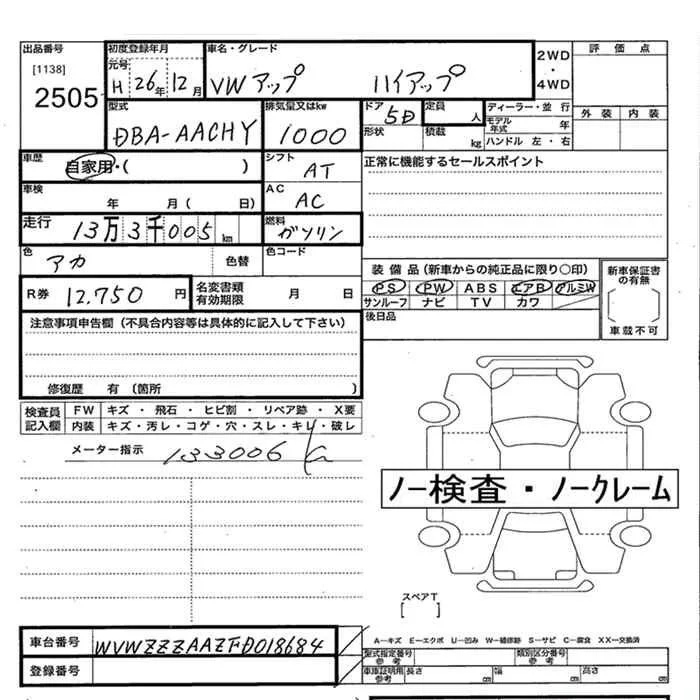 出品番号 初度登録年月 車名・グレード 2WD・4WD 評価点
[1138] 元号
2505 H 26年 12月 VW アップ ハイアップ
外装 内装
型式 排気量又はkw ドア 定員 ディーラー・並行
DBA-AACHY 1000 5D 人 モデル年式 年
形状 積載 kg ハンドル 左・右
車歴 自家用・( ) シフト AT 正常に機能するセールスポイント
車検 年 月( 日) AC AC
走行 13万3千005km 燃料 ガソリン
色 アカ 色替 色コード
装備品(新車からの純正品に限り○印) 新車保証書の有無
R券 12,750円 名変書類有効期限 月 日
PS PW ABS エアB アルミW
サンルーフ ナビ TV カワ
後日品 車載不可
注意事項申告欄(不具合内容等は具体的に記入して下さい)
修復歴 有(箇所 )
検査員記入欄 FW キズ・飛石・ヒビ割・リペア跡・X要
内装 キズ・汚レ・コゲ・穴・スレ・キレ・破レ
メーター指示 133006
ノー検査・ノークレーム
スペアT
[ ]
車台番号 WVWZZZAAZFD018684
A-キズ E-エクボ U-凹み W-補修跡 S-サビ C-腐食 XX-交換済
登録番号 型式指定番号 参考 類別区分番号 参考
車庫証明用 参考 長さ cm 幅 cm 高さ cm